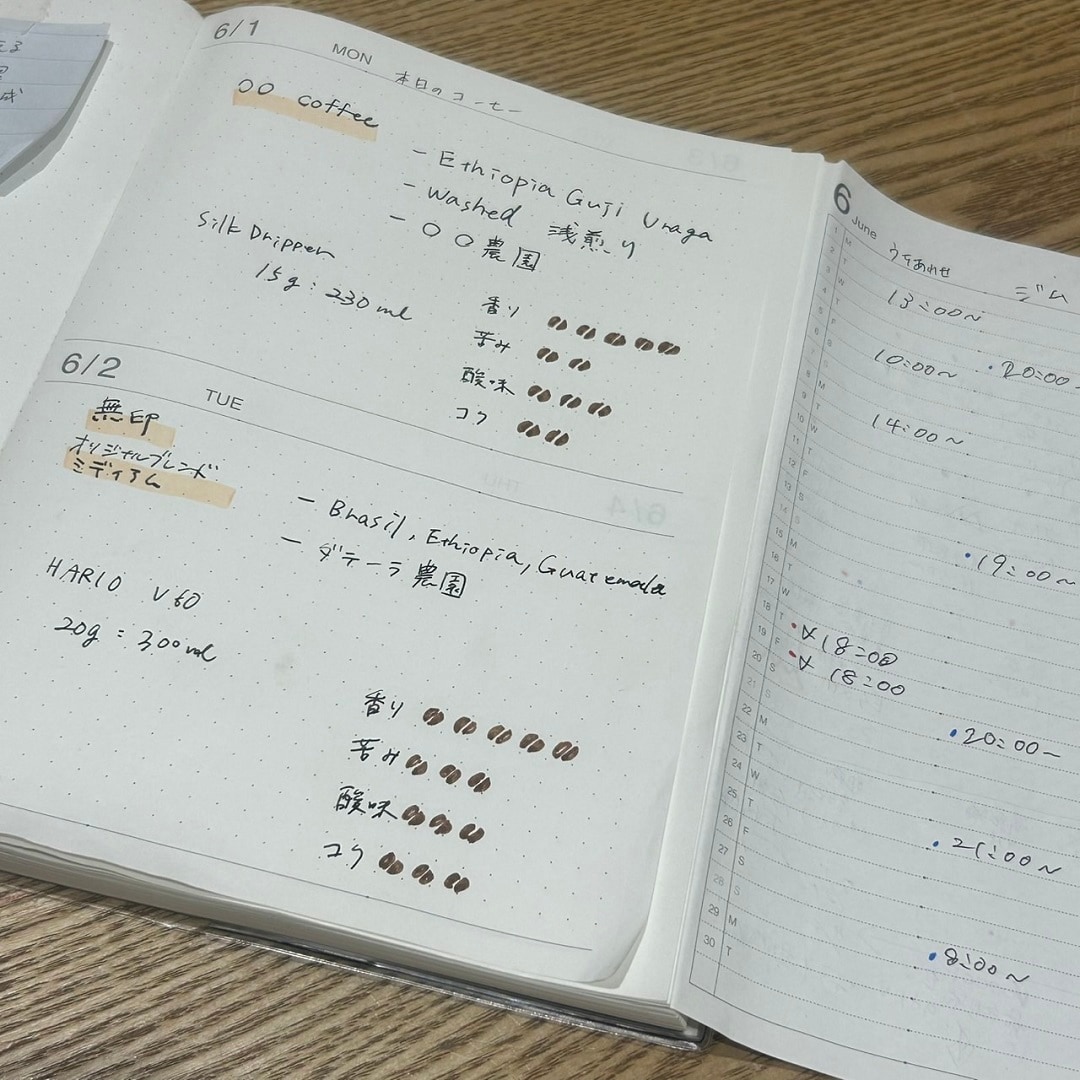 6/1
MON
本日のコーヒー
○○ coffee
- Ethiopia Guji Uraga
- Washed 浅煎り
- ○○農園
Silk Dripper
15g : 230ml
香り
苦み
酸味
コク
6/2
TUE
無印
オリジナルブレンド
ミディアム
- Brasil, Ethiopia, Guatemala
- ダテーラ農園
HARIO V60
20g : 300ml
香り
苦み
酸味
コク
6
June
うちあわせ
ジム
1 M
2 T
3 W
13:00~
4 T
5 F
6 S
10:00~
・20:00~
7 S
8 M
9 T
14:00~
10 W
11 T
12 F
13 S
14 S
15 M
・19:00~
16 T
17 W
18 T
・〆18:00
19 F
・〆 18:00
20 S
21 S
・20:00~
22 M
23 T
24 W
25 T
・21:00~
26 F
27 S
28 S
29 M
・8:00~
30 T